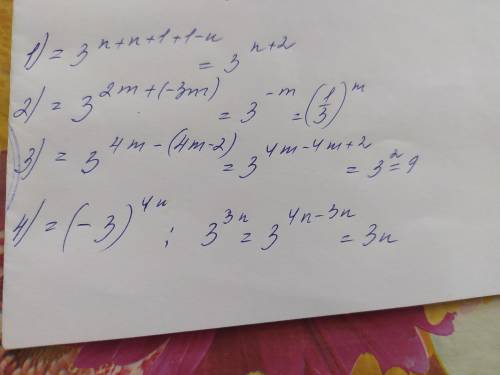 1) = 3^{n+n+1+1-n} = 3^{n+2}
2) = 3^{2m+(-3m)} = 3^{-m} = (1/3)^m
3) = 3^{4m-(4m-2)} = 3^{4m-4m+2} = 3^2 = 9
4) = (-3)^{4n} : 3^{3n} = 3^{4n-3n} = 3n